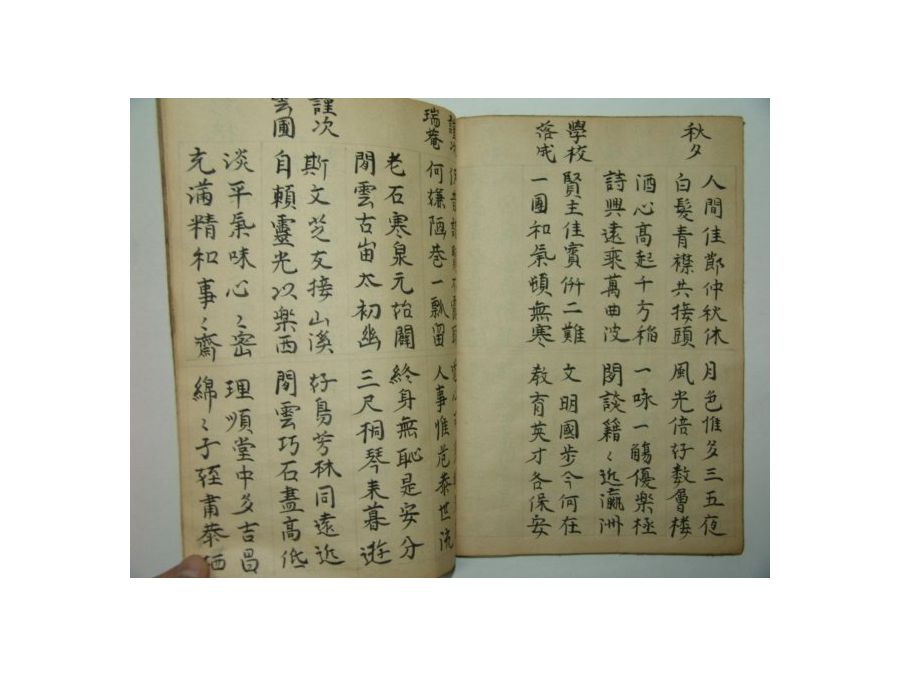 秋夕
人間佳節仲秋休 月色惟多三五夜
白髮青襟共接頭 風光倍好数層楼
酒心高起千方稻 一咏一觴優樂極
詩興遠乘萬曲波 閑談籍〻近瀛洲
學校
落成
賢主佳賓併二難 文明國步今何在
一團和氣頓無寒 教育英才各保安
瑞菴
何嫌陋巷一瓢留 人事惟危泰世流
老石寒泉元始闢 終身無恥是安分
閒雲古宙太初幽 三尺桐琴耒暮遊
謹次
雲圃
斯文芝友接山溪 好鳥芳林同遠近
自賴靈光以樂西 閒雲巧石盡高低
淡平氣味心〻密 理順堂中多吉昌
充滿精和事〻齋 綿〻子姪肅恭栖